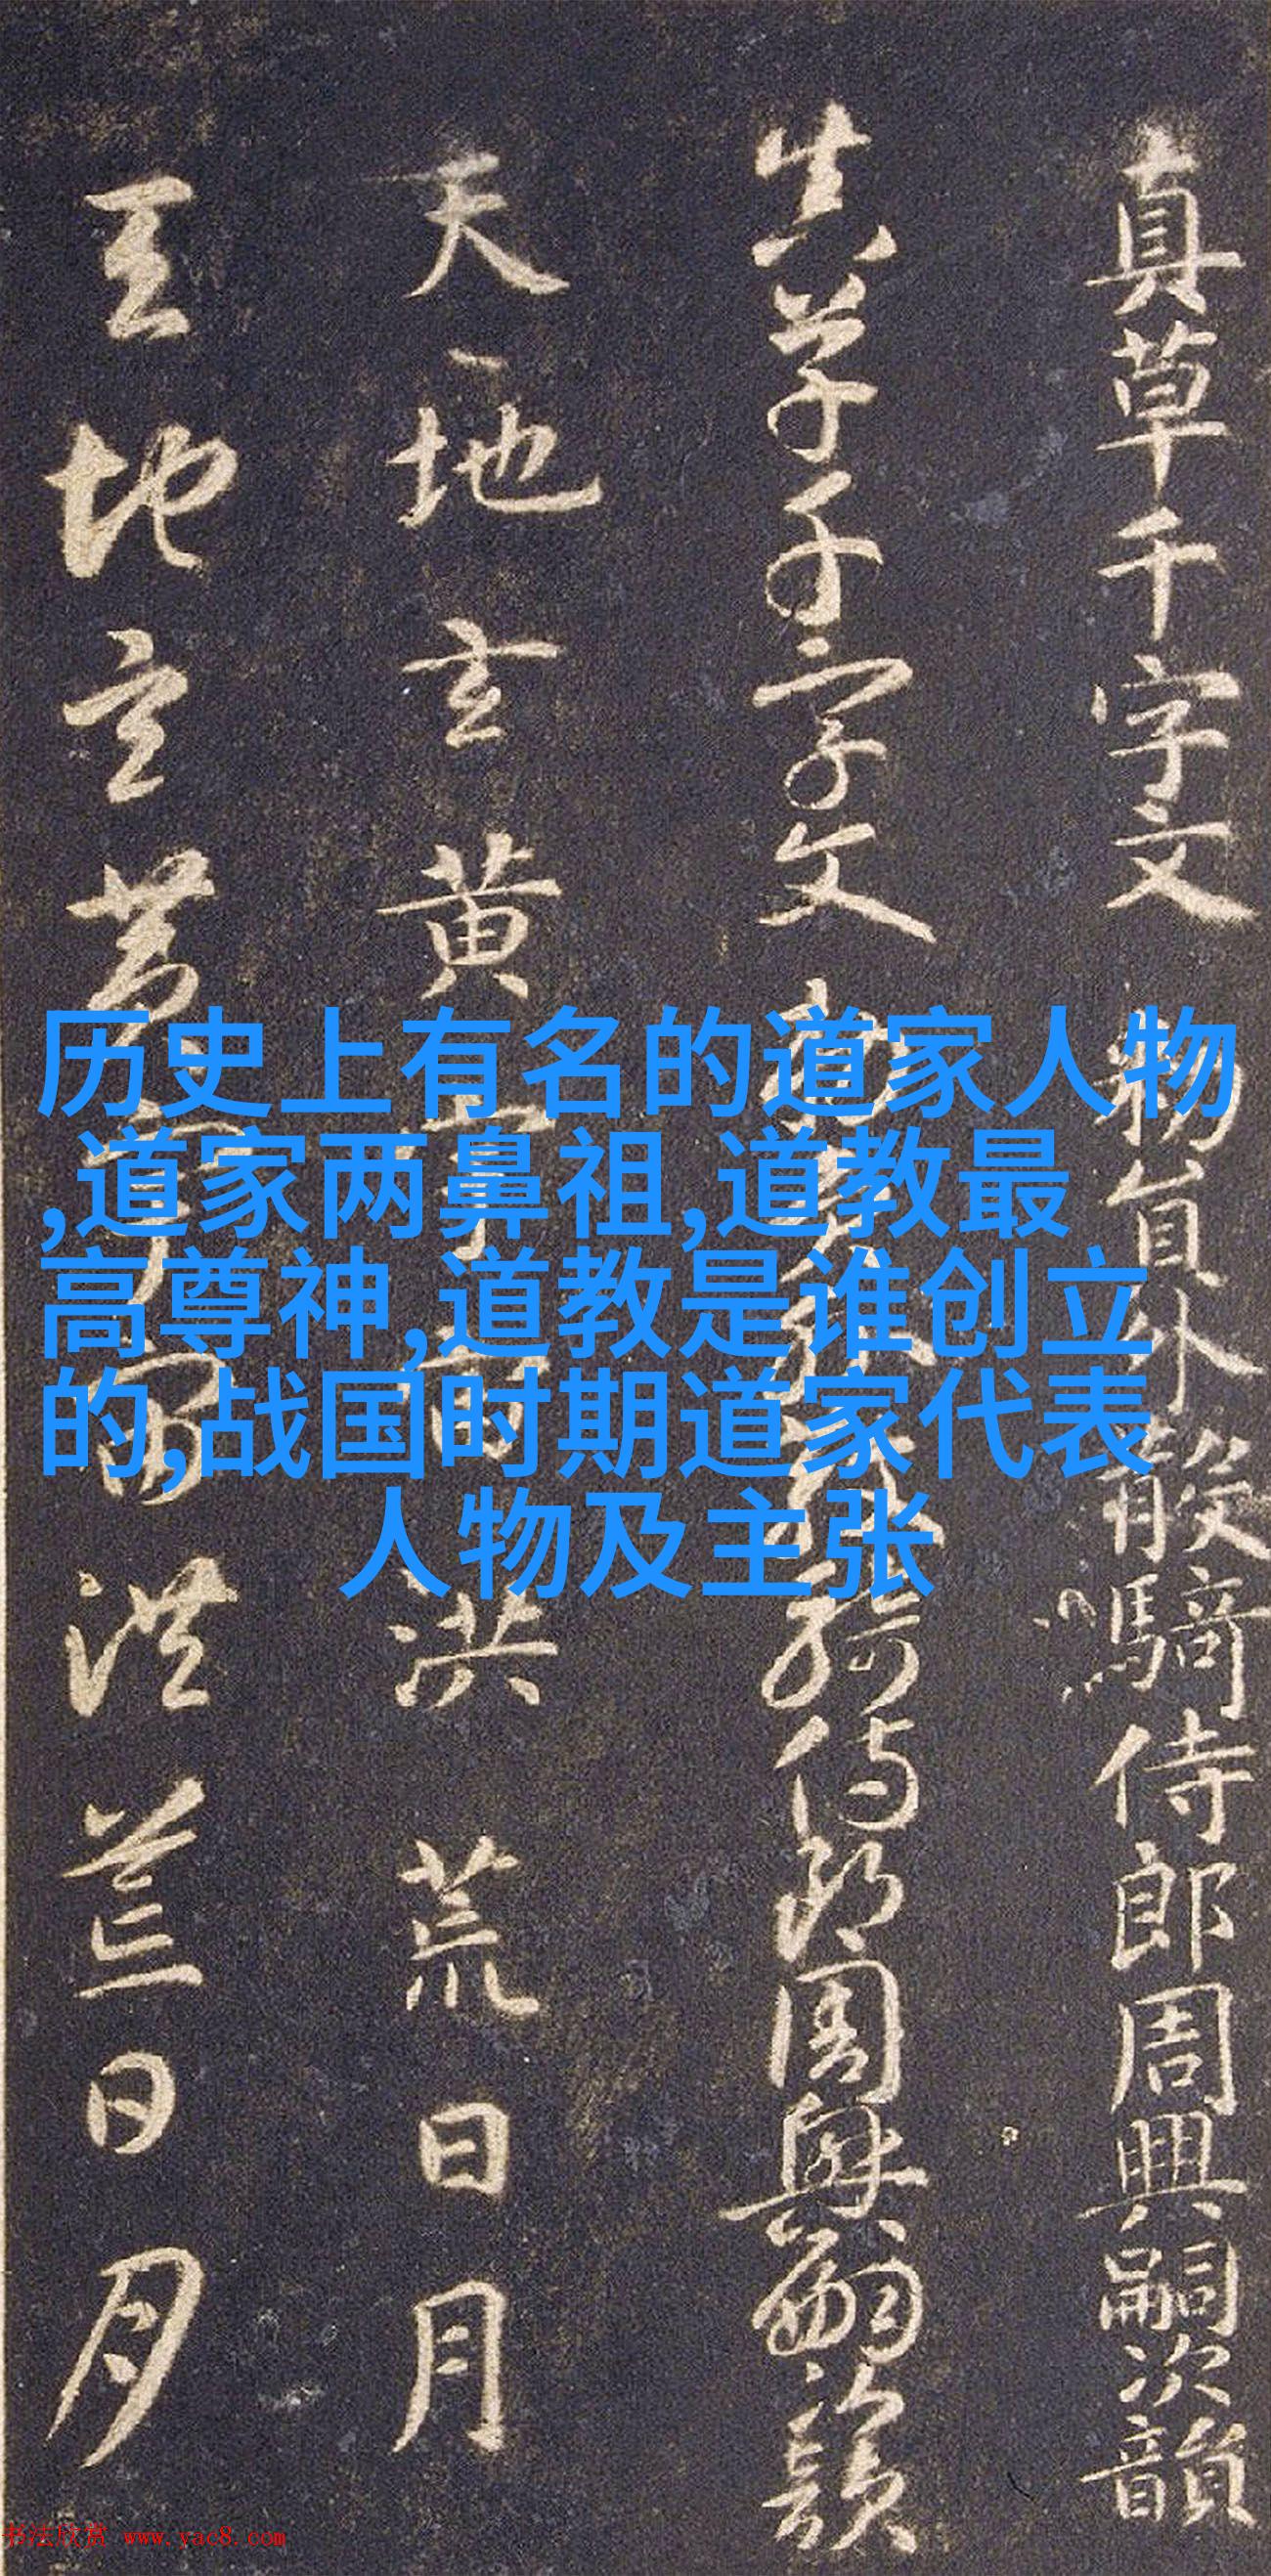 真草千字文 勑員外散騎侍郎周興嗣次韻
真草千字文
天地玄黄
洪荒日月
天地玄黄宇宙洪荒日月
历史上有名的道家人物
,道家两鼻祖,道教最
高尊神,道教是谁创立
的,战国时期道家代表
人物及主张
书法欣赏 www.yac8.com